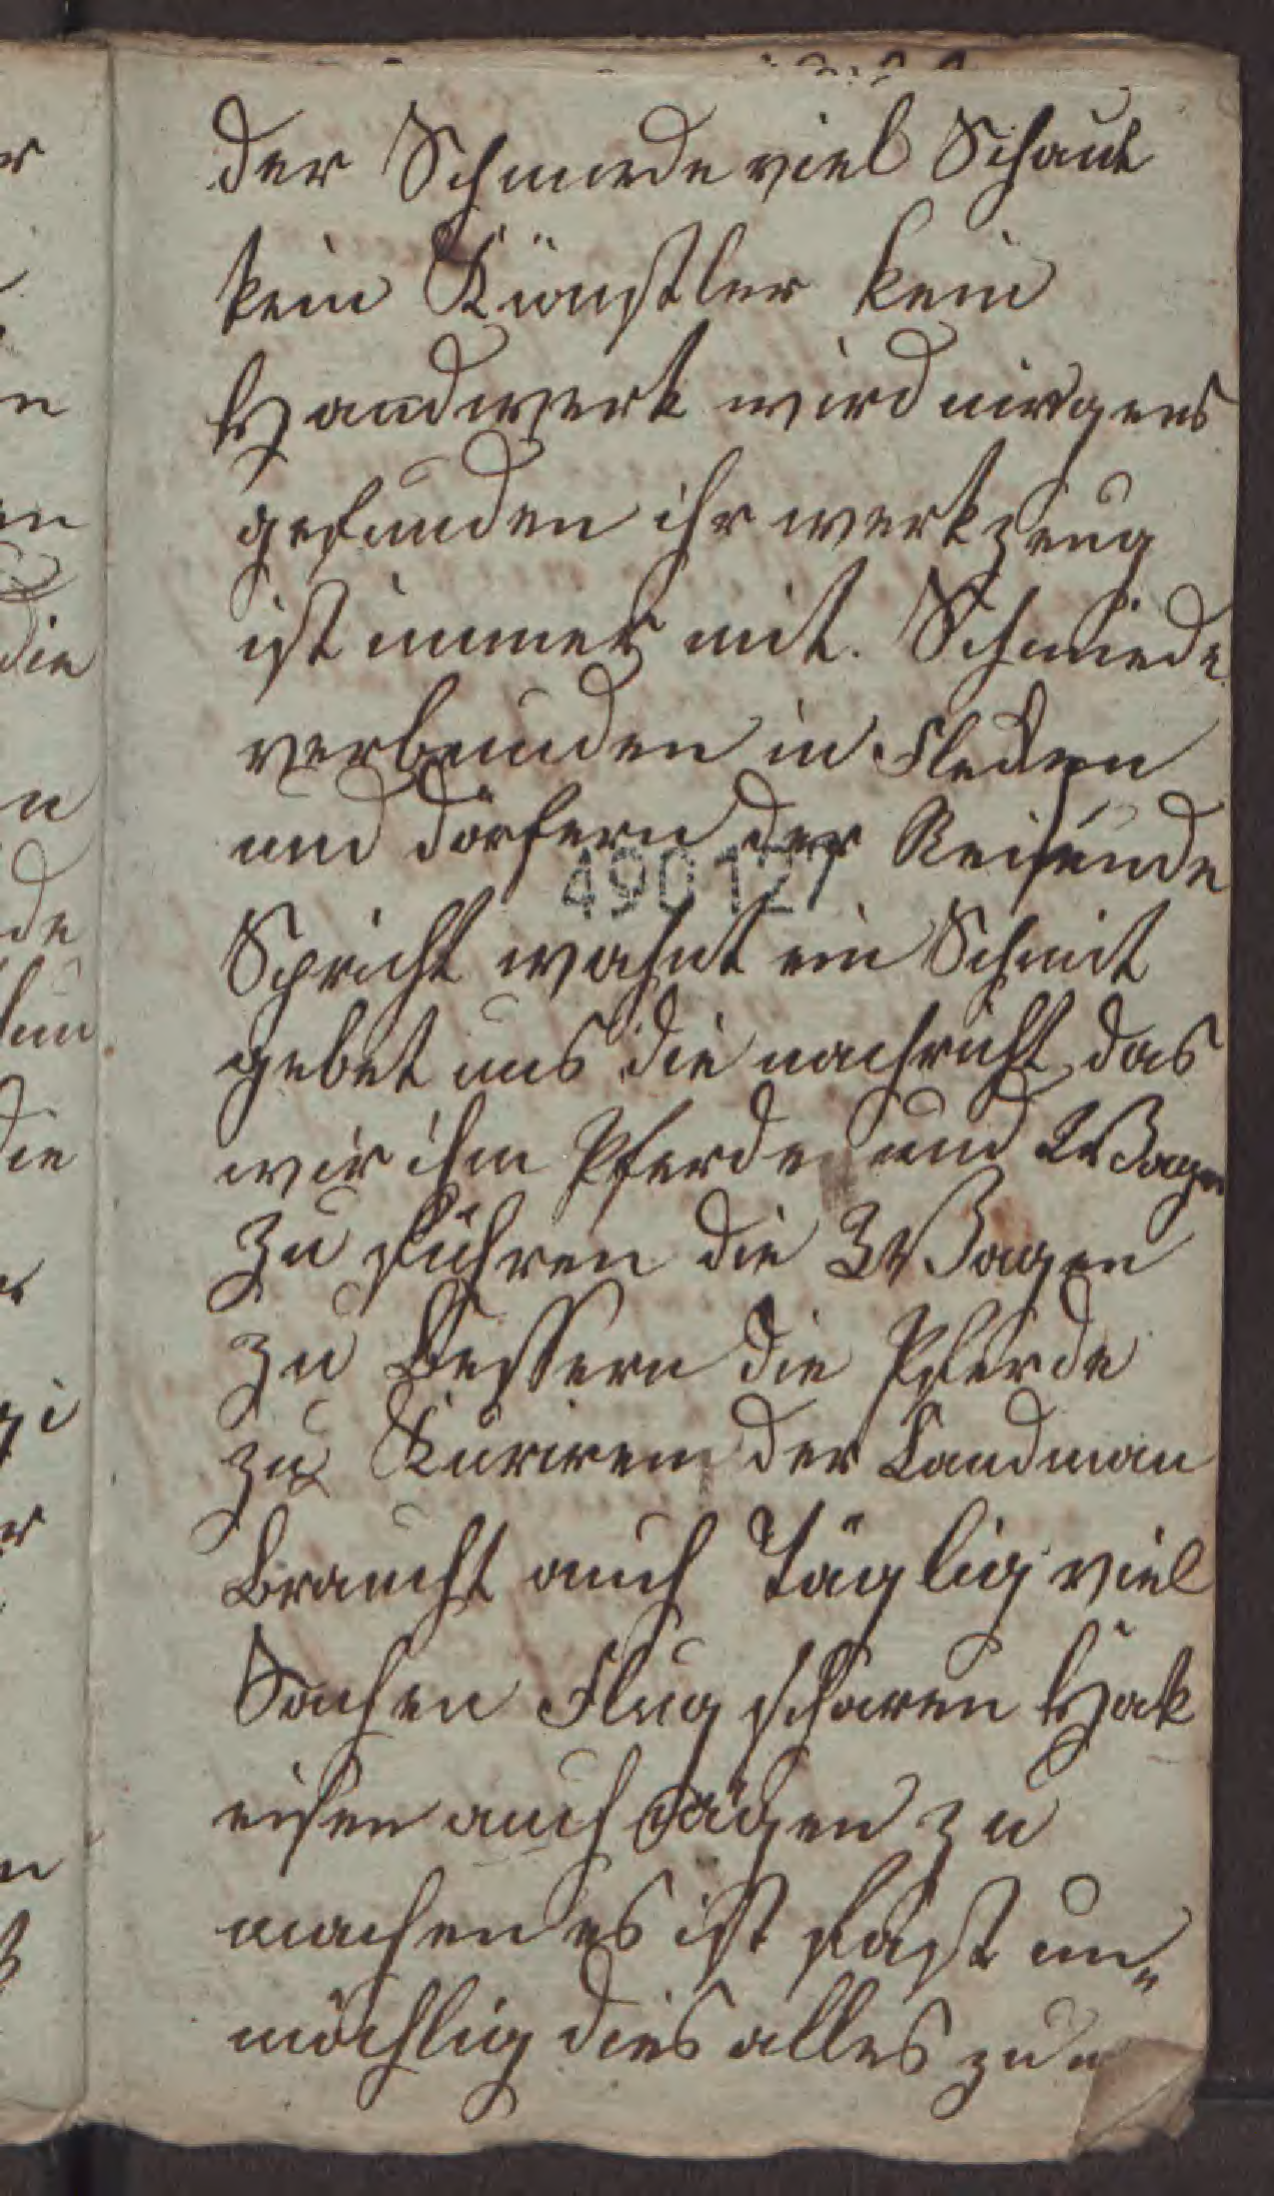 der Schmide viel Schaut
kein Künstler kein
Handwerk wird nirgens
gefunden ihr werkzeug
ist immer mit. Schmiede
verbunden in Flecken
und dörfern der Reisende
490127
Spricht wohnt ein Schmit
gebet uns die nachricht das
wir ihm Pferde und Wagen
zu führen die Wagen
zu bessern die Pferde
zu Kuriren der Landman
braucht auch Täglig viel
Sachen Flug scharen Hak
eisen auch Sägen zu
machen es ist fast un„
möchlig dies alles zu